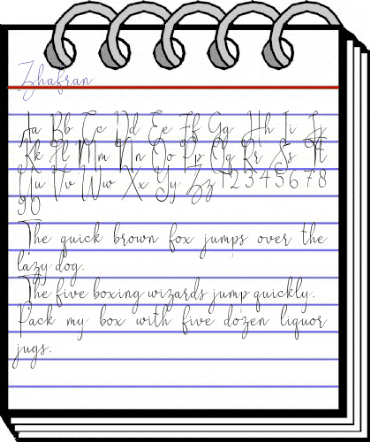 Zhafran
Aa Bb Cc Dd Ee Ff Gg Hh Ii Jj
Kk Ll Mm Nn Oo Pp Qq Rr Ss Tt
Uu Vv Ww Xx Yy Zz 1 2 3 4 5 6 7 8
9 0
The quick brown fox jumps over the
lazy dog.
The five boxing wizards jump quickly.
Pack my box with five dozen liquor
jugs.